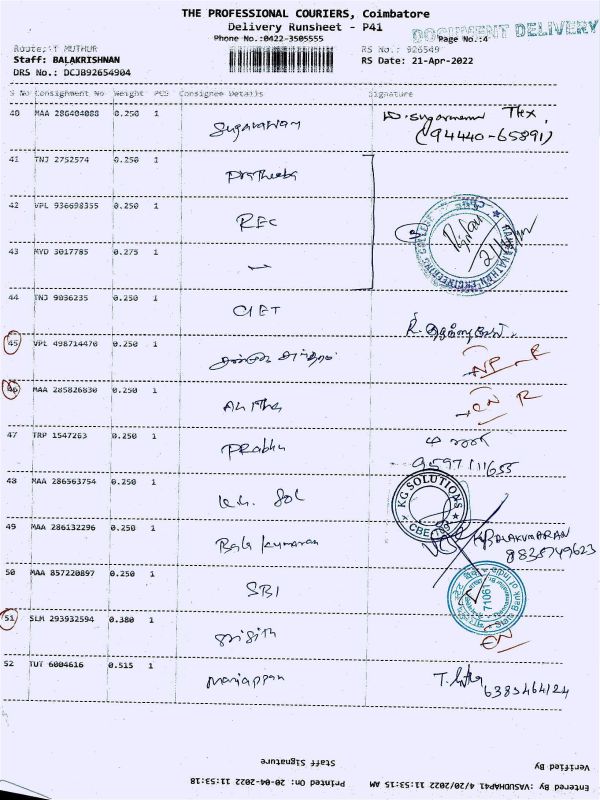 THE PROFESSIONAL COURIERS, Coimbatore
Delivery Runsheet - P41
DOCUMENT DELIVERY
Phone No.:0422-3505555
Page No.:4
Route: T MUTHUR
RS No.: 926549
Staff: BALAKRISHNAN
RS Date: 21-Apr-2022
DRS No.: DCJB92654904
S No Consignment No Weight PCS Consignee Details Signature
40 MAA 286404088 0.250 1 Sugavanam
(94440-65891)
41 TNJ 2752574 0.250 1 Pratheeba
42 VPL 936698355 0.250 1 REC
43 MVD 3017785 0.275 1
44 TNJ 9036235 0.250 1 CIET
45 VPL 498714470 0.250 1
46 MAA 285826830 0.250 1 Anitha
47 TRP 1547263 0.250 1 Prabhu
9597111655
48 MAA 286563754 0.250 1 K.G. Sol
KG SOLUTIONS
CBE
49 MAA 286132296 0.250 1 Bala Kumaran
BALAKUMARAN
50 MAA 857220897 0.250 1 SBI
71061
State Bank of India
51 SLM 293932594 0.380 1
52 TUT 6004616 0.515 1 Mariappan
6385464124
Staff Signature
Verified By
Printed On: 20-04-2022 11:53:18
Entered By :VASUDHAP41 4/20/2022 11:53:15 AM